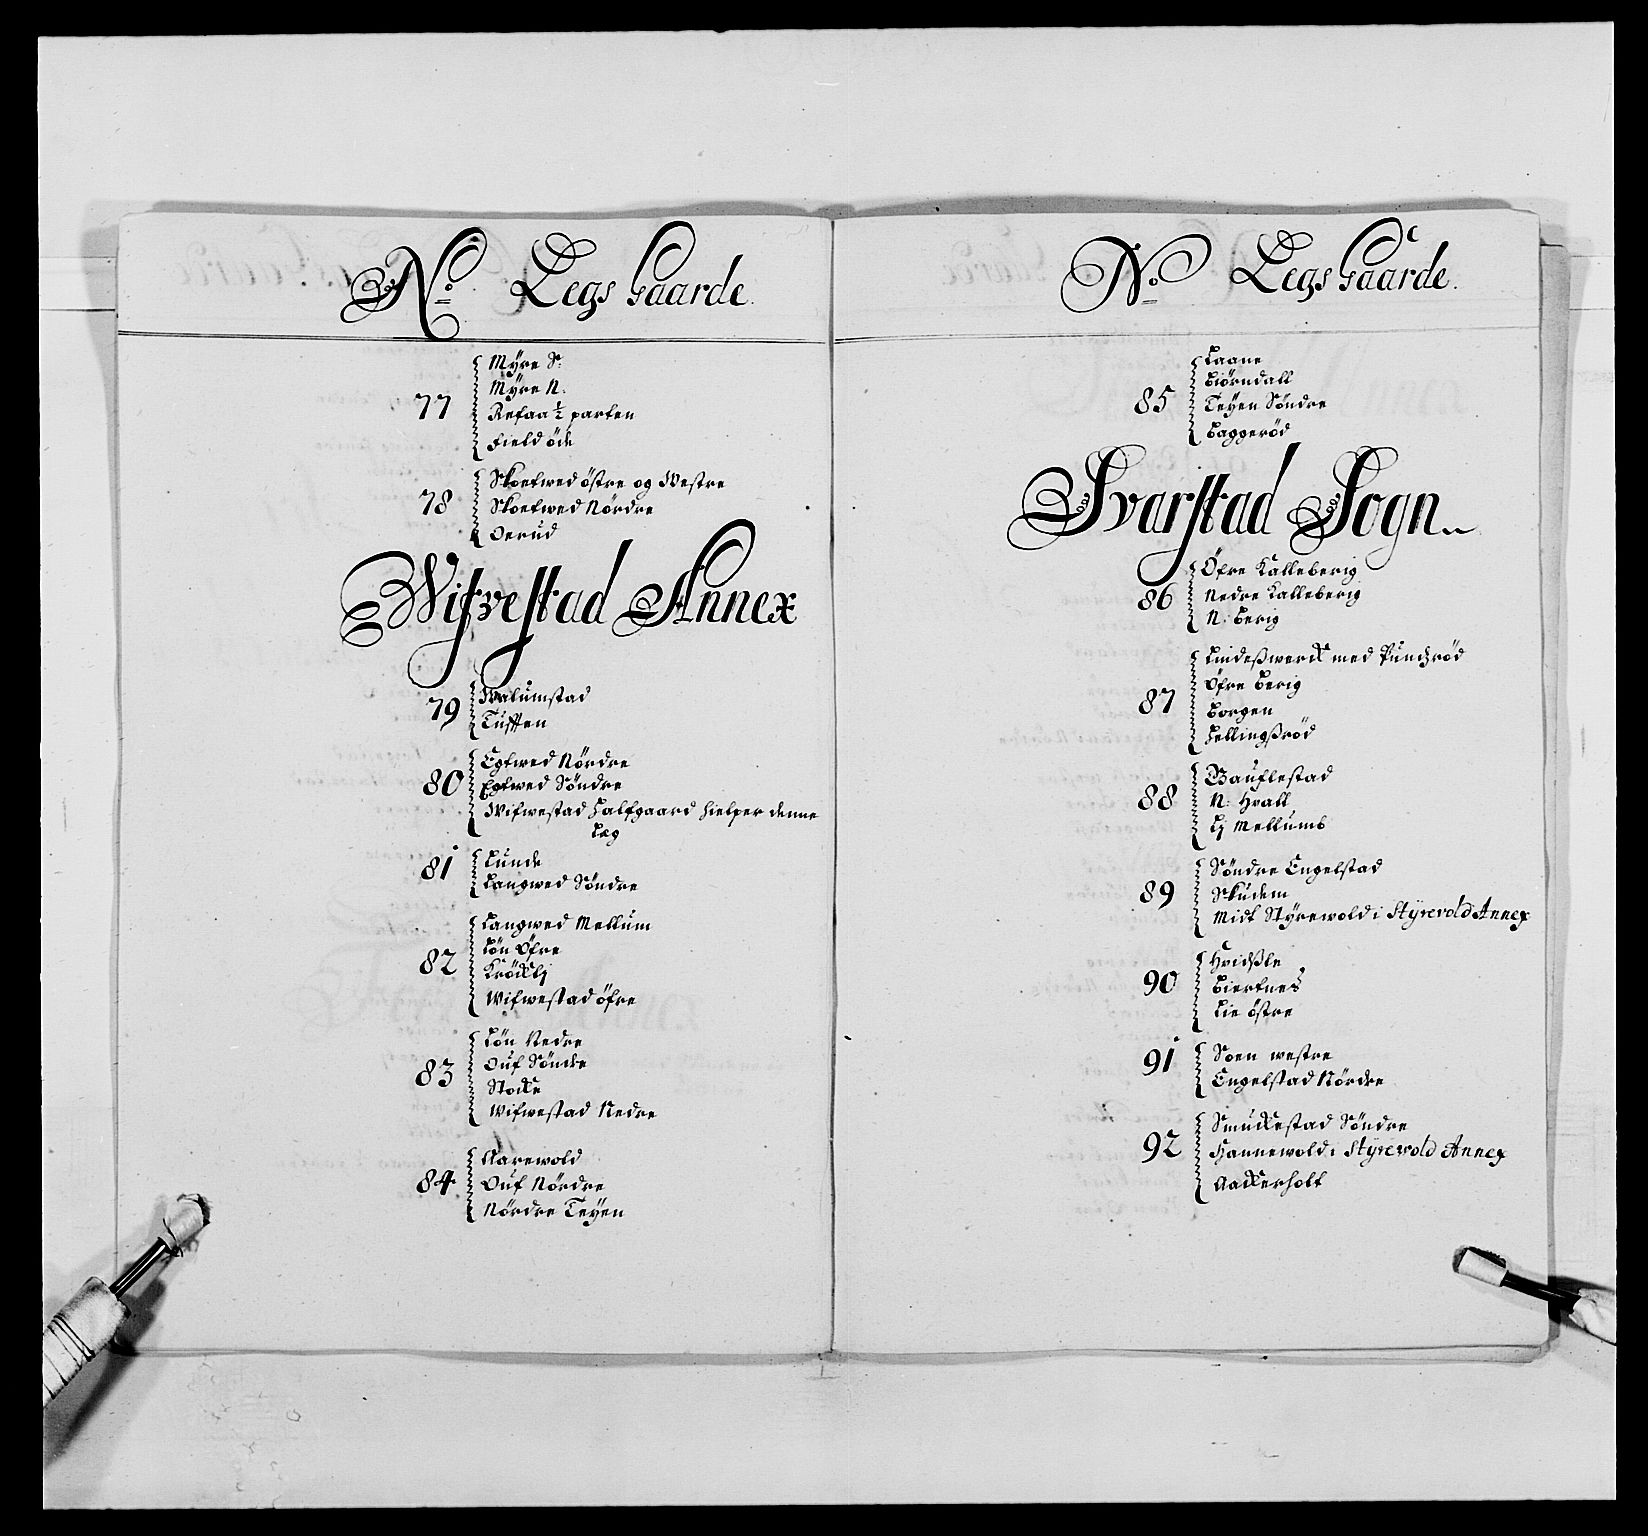 No Legs Gaarde.
77
Myre S:
Myre N:
Refaa ½ parten
Field öde
78
Skoetwed östre og Westre
Skoetwed Nördre
Oerud
Wifvestad Annex
79
Walumstad
Tufften
80
Egtwed Nördre
Egtwed Söndre
Wifwestad Halfgaard hielper denne
Læg
81
Lunde
Langwed Söndre
82
Langwed Mellum
Lön Öfre
Krödelj
Wifwestad öfre
83
Lön Nedre
Ouf Söndre
Stocke
Wifwestad Nedre
84
Aarewold
Ouf Nördre
Nördre Teyen
No Legs Gaarde.
85
Laane
Biörndall
Teyen Söndre
Baggeröd
Svarstad Sogn
86
Öfre Kalleberig
Nedre Kalleberig
N: Berig
87
Lindeßwerck med
Öfre Berig
Borgen
Hellingßröd
88
Gauflestad
N: Hvall
Lj Mellumb
89
Söndre Engelstad
Skudem
Midt Styrewold i Styrevold Annex
90
Hvidßle
Biertnes
Lie östre
91
Soen westre
Engelstad Nördre
92
Smuckestad Söndre
Hannewold i Styrevold Annex
Aackerholt